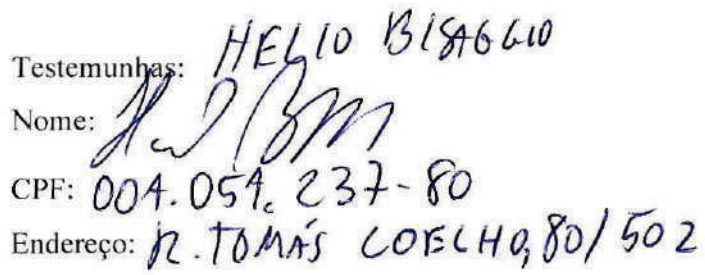 Testemunhas: HELIO BISAGGIO
Nome:
CPF: 004.054.237-80
Endereço: R. TOMÁS COELHO, 80/502